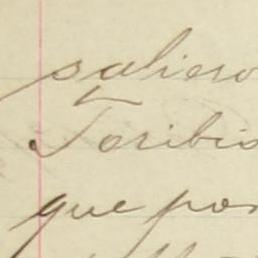 saliero
Toribio
que por